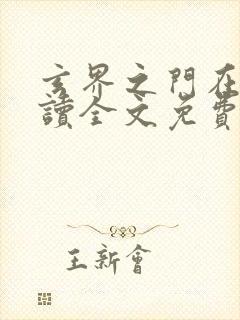 玄界之門在
讀全文免費
王新會